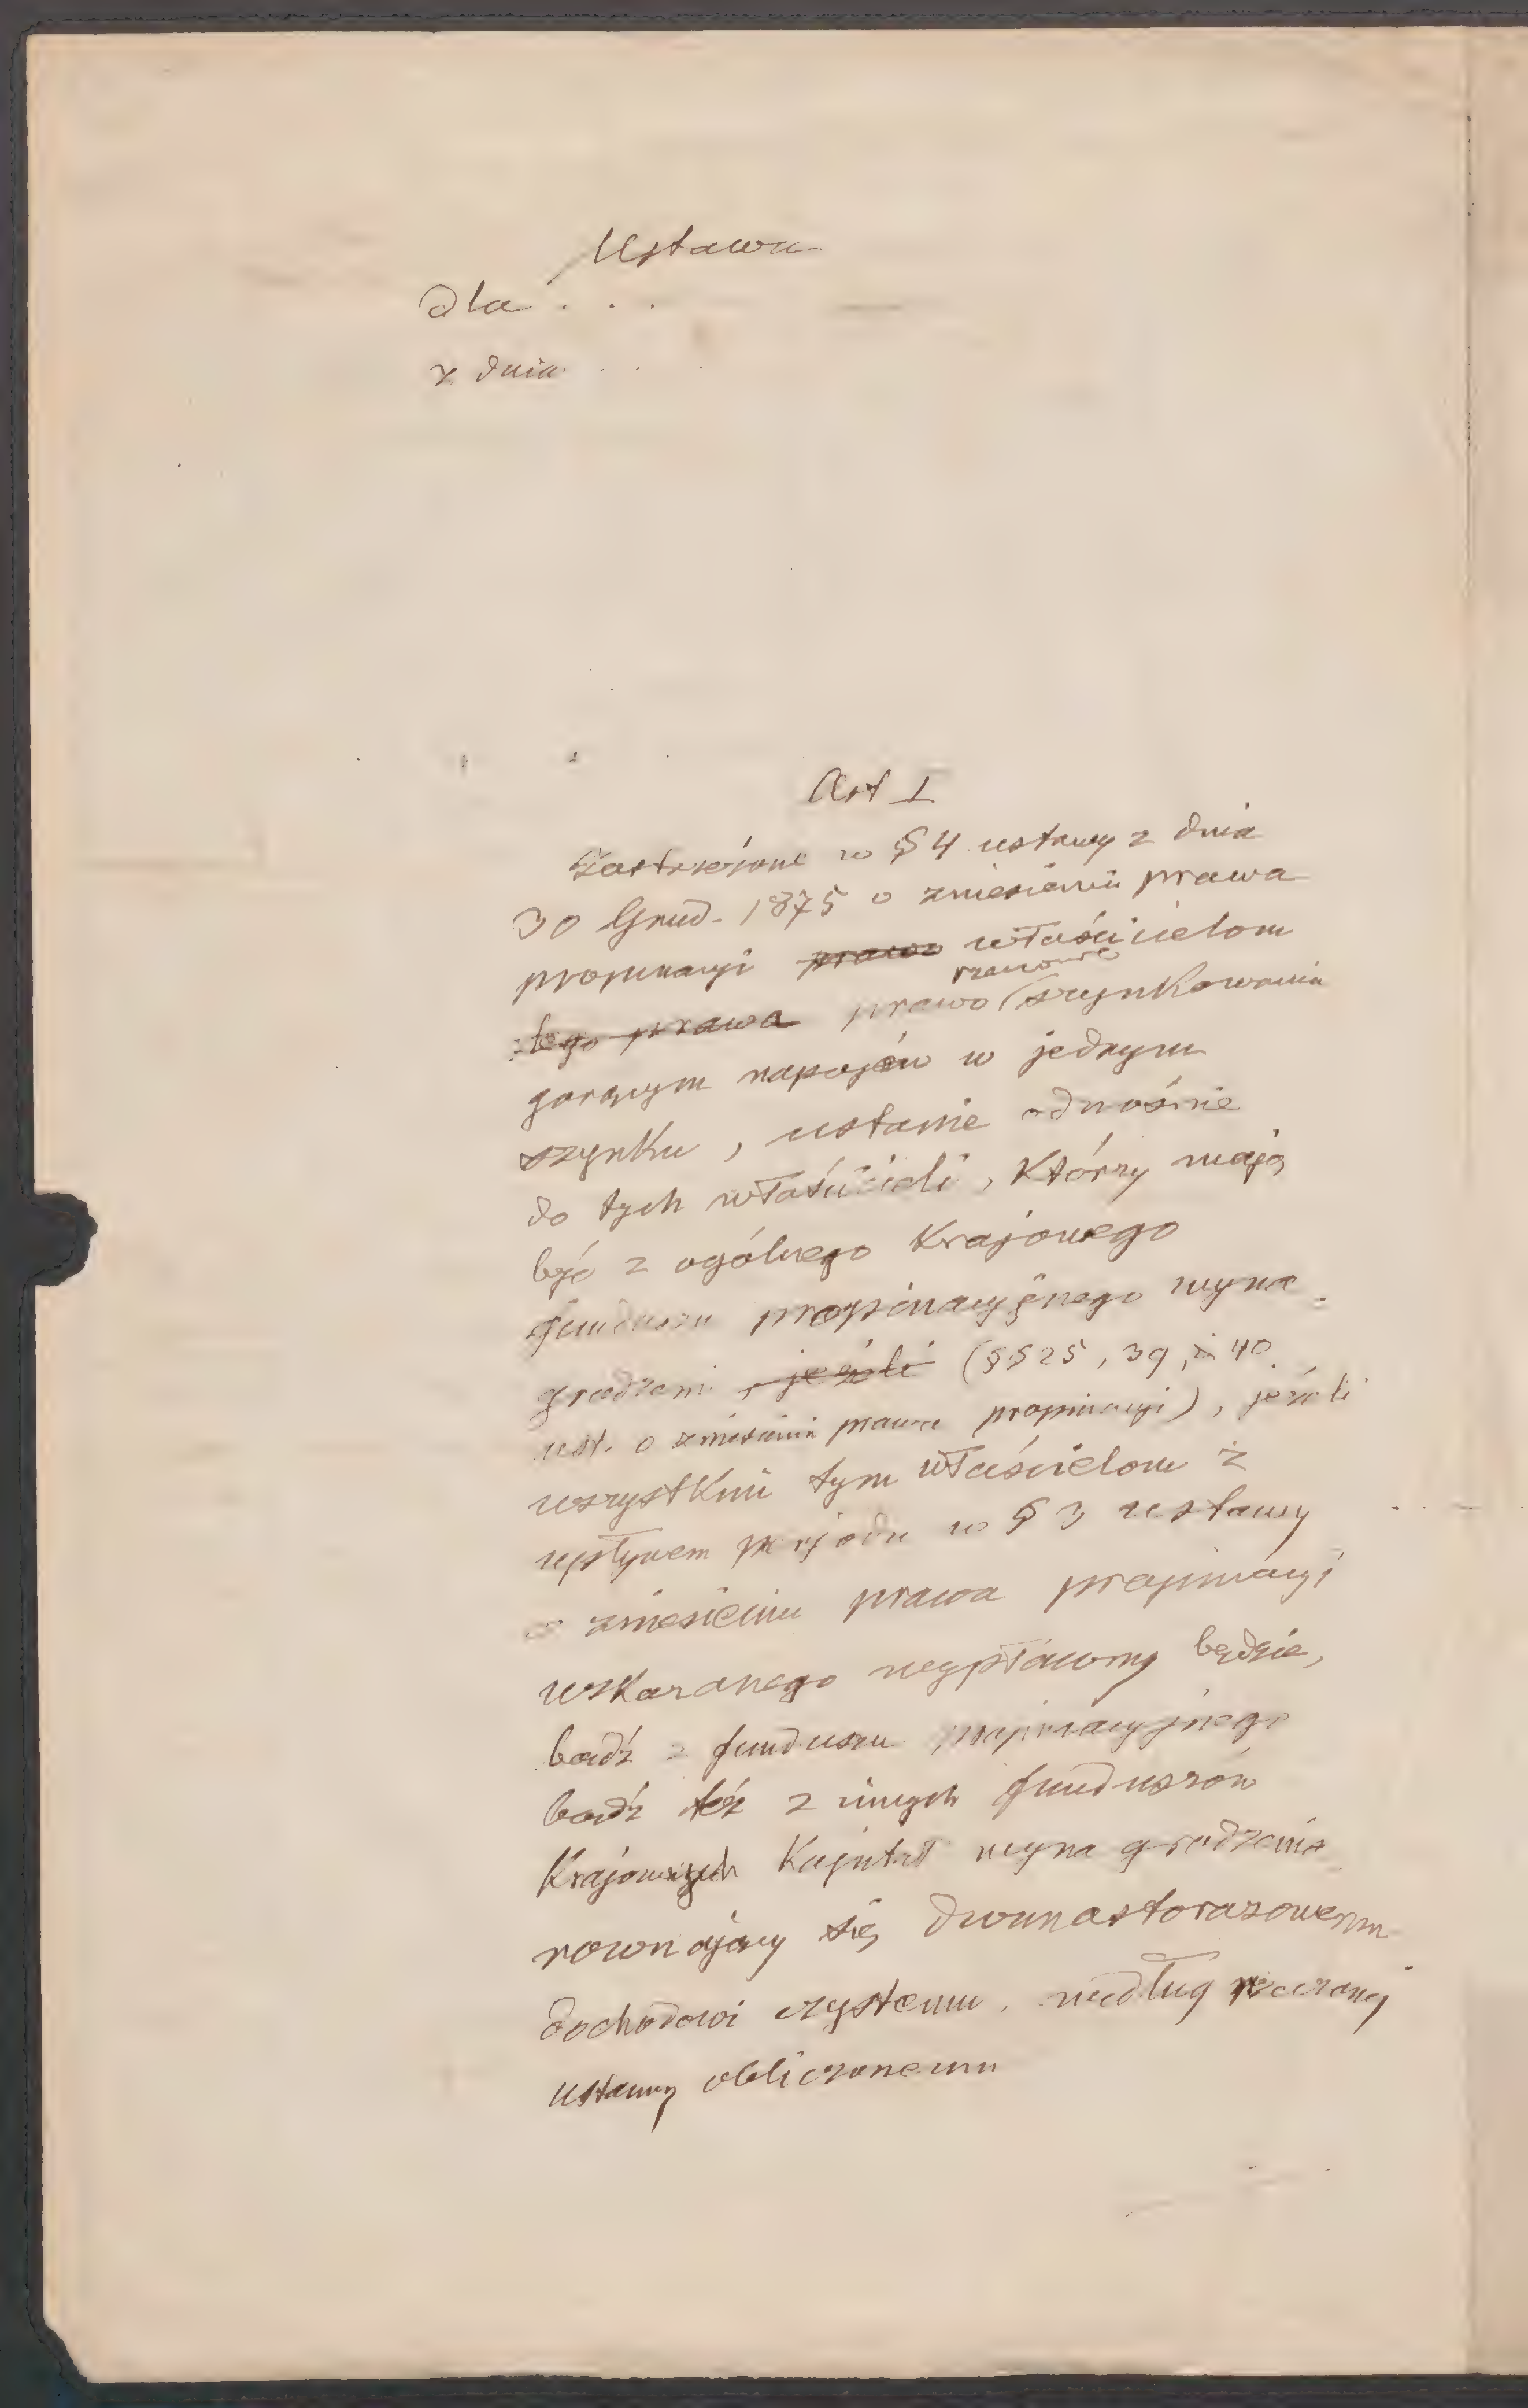 Ustawa
dla . . .
z dnia . . .
Art 1
Zastrzeżone w § 4 ustawy z dnia
30 Grud. 1875 o zniesieniu prawa
propinacyi prawo właścicielom
tego prawa prawo szynkowania
gorącym napojów w jednym
szynku, ustanie odnośnie
do tych właścicieli, Którzy mają
być z ogólnego Krajowego
funduszu propinacyjnego wyna-
grodzeni, jeżeli (§§ 25, 39, i 40
ust. o zniesieniu prawa propinacyi), jeżeli
wszystkim tym właścicielom z
upływem perjodu w § 3 ustawy
o zniesieniu prawa propinacyi
wskazanego wypłacony będzie,
bądź z funduszu propinacyjnego
bądź też z innych funduszów
Krajowych Kapitał wynagrodzenia
rownający się dwunastorazowemu
dochodowi czystemu, według rzeczonej
ustawy obliczonemu